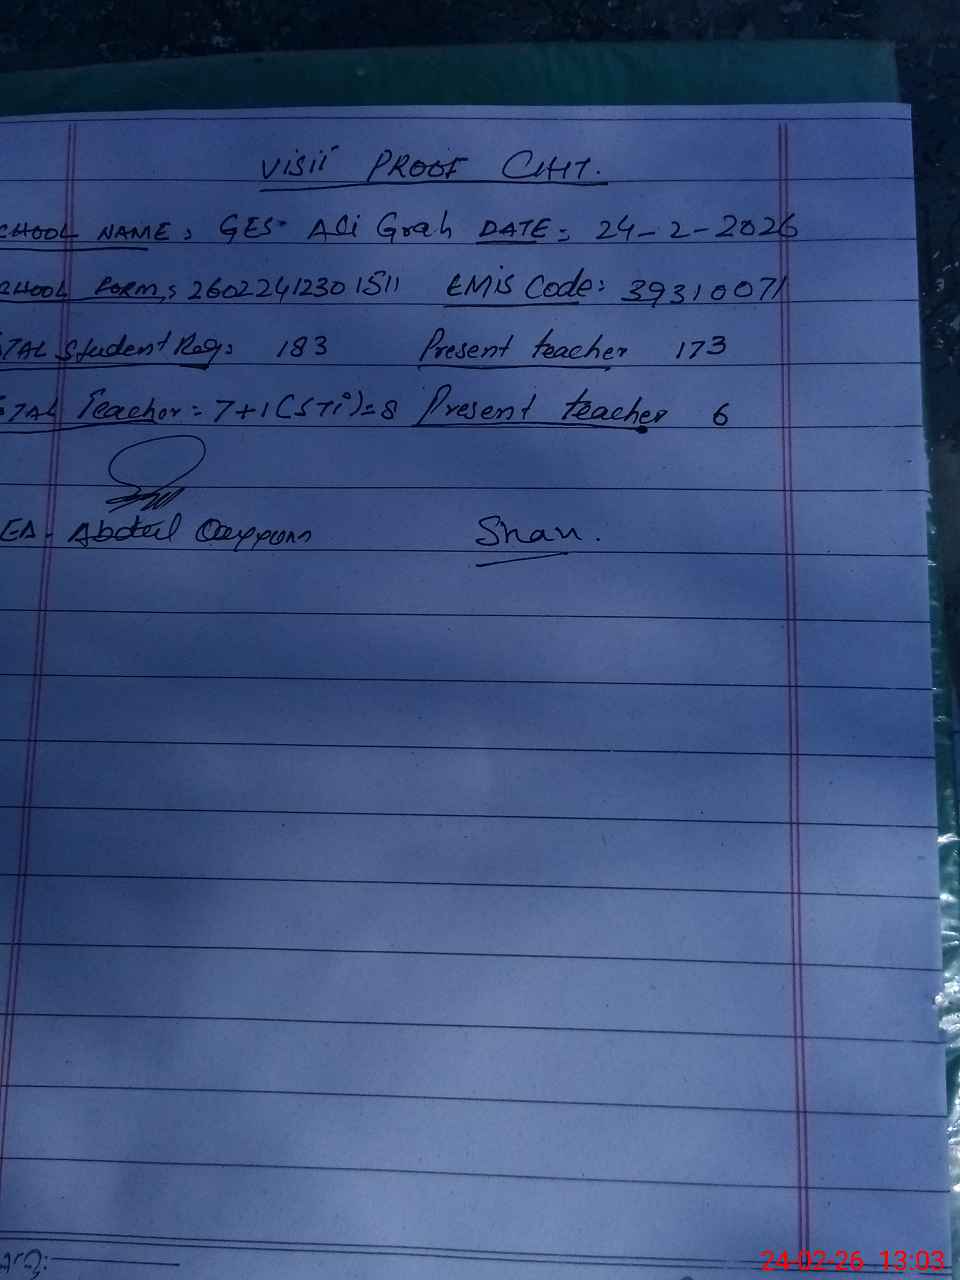 VISIT PROOF CHIT.
CHOOL NAME: GES Ali Grah DATE: 24-2-2026
CHOOL FORM: 26022412301511 EMIS Code: 39310071
TAL Student Reg: 183 Present teacher 173
TAL Teacher = 7+1(STi)=8 Present teacher 6
EA. Abdul Qayyom Shan.
24-02-26 13:03